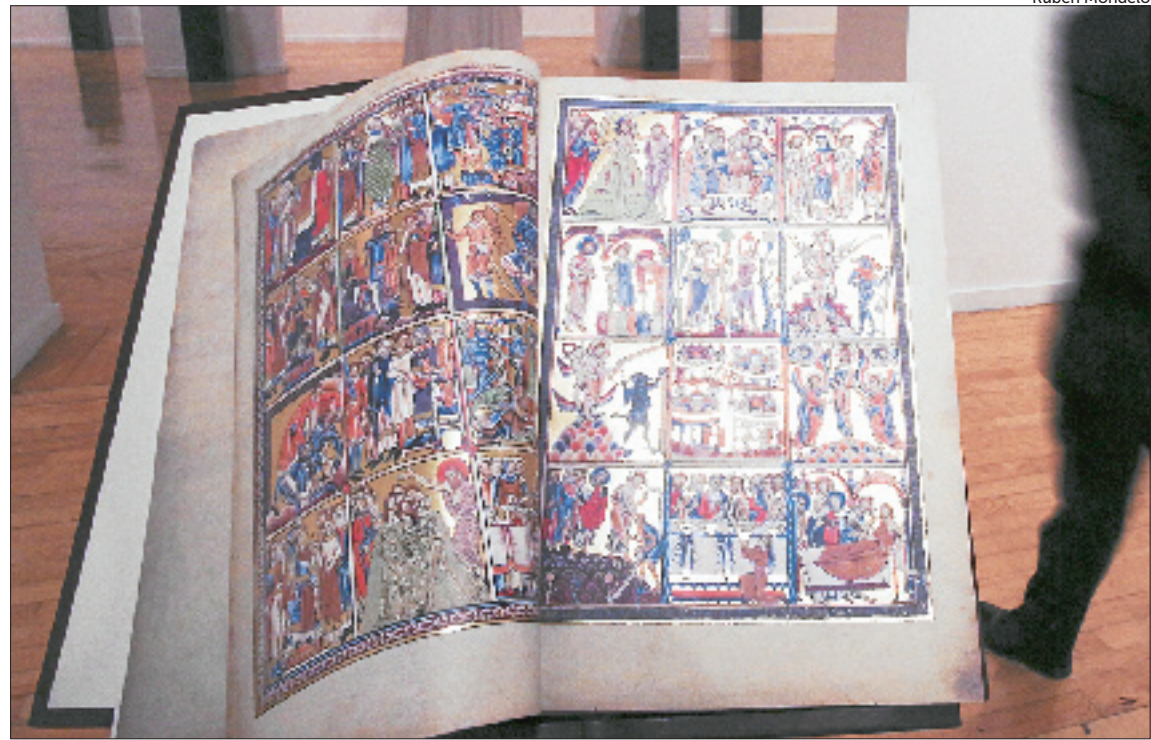 Rubén Mondelo